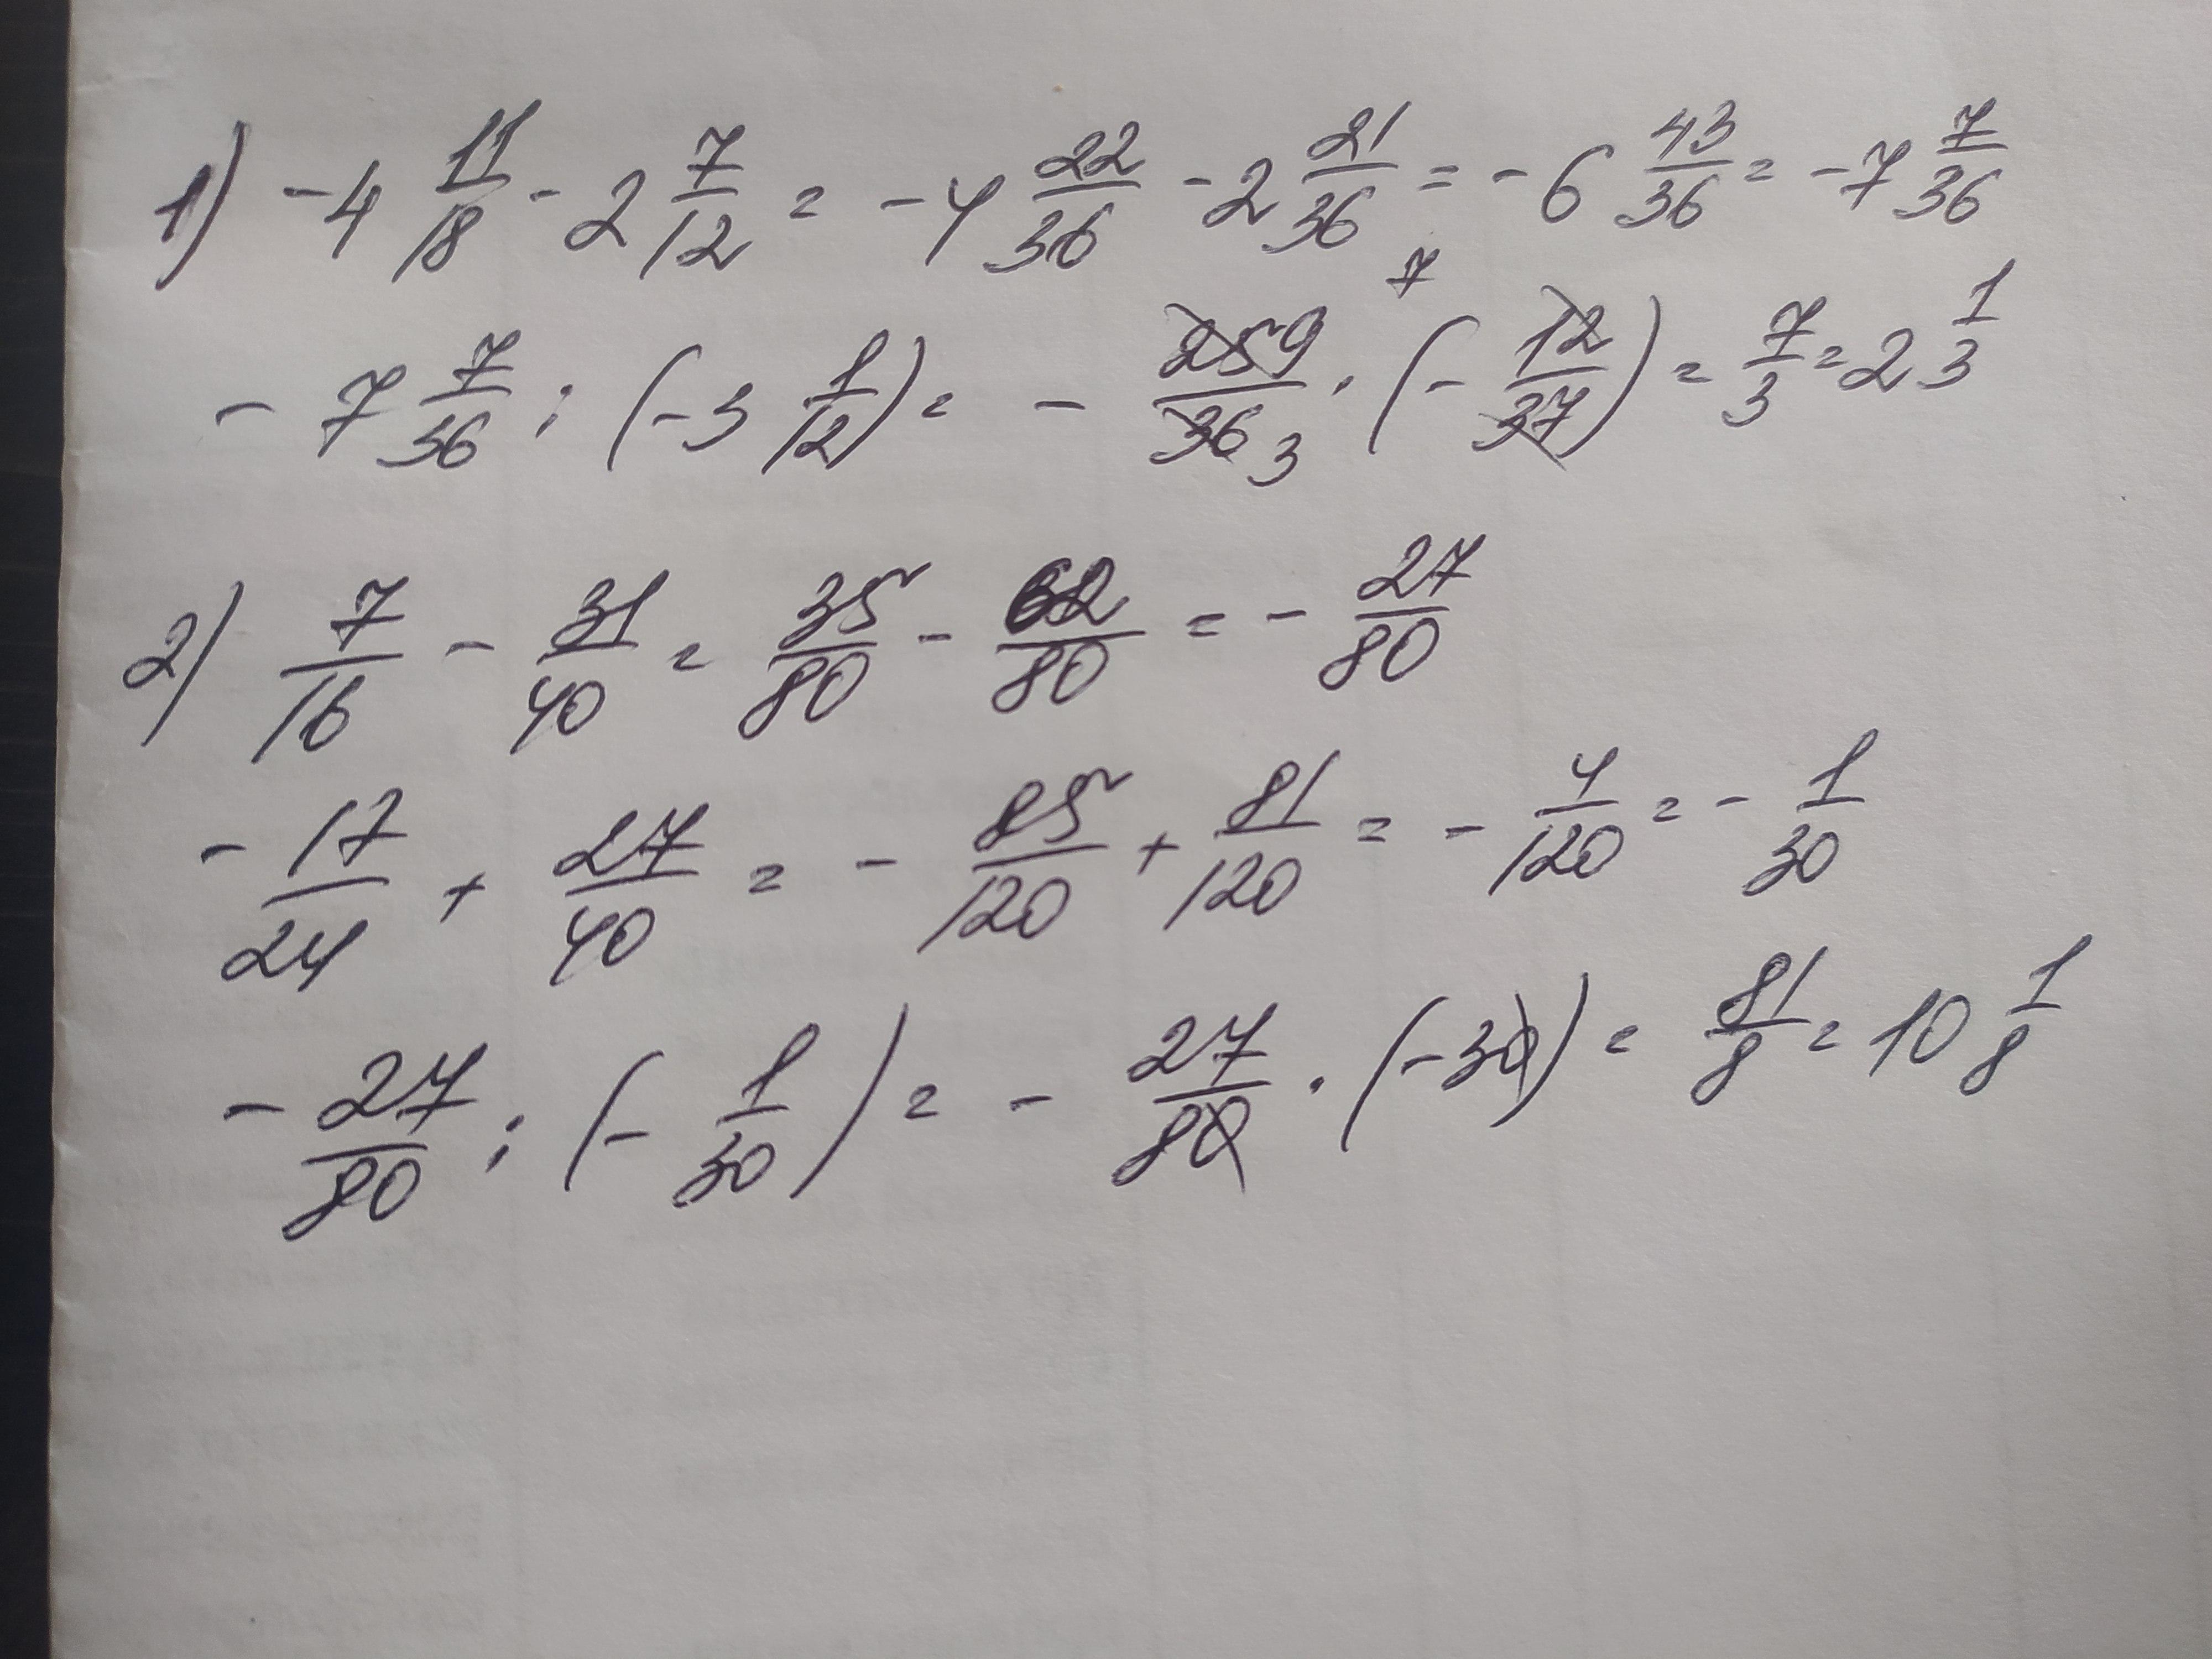 1) -4 11/18 - 2 7/12 = -4 22/36 - 2 21/36 = -6 43/36 = -7 7/36
-7 7/36 : (-3 1/12) = - 259/36 7 3 · (- 12/37) = 7/3 = 2 1/3
2) 7/16 - 31/40 = 35/80 - 62/80 = - 27/80
- 17/24 + 27/40 = - 85/120 + 81/120 = - 4/120 = - 1/30
- 27/80 : (- 1/30) = - 27/80 · (-30) = 81/8 = 10 1/8